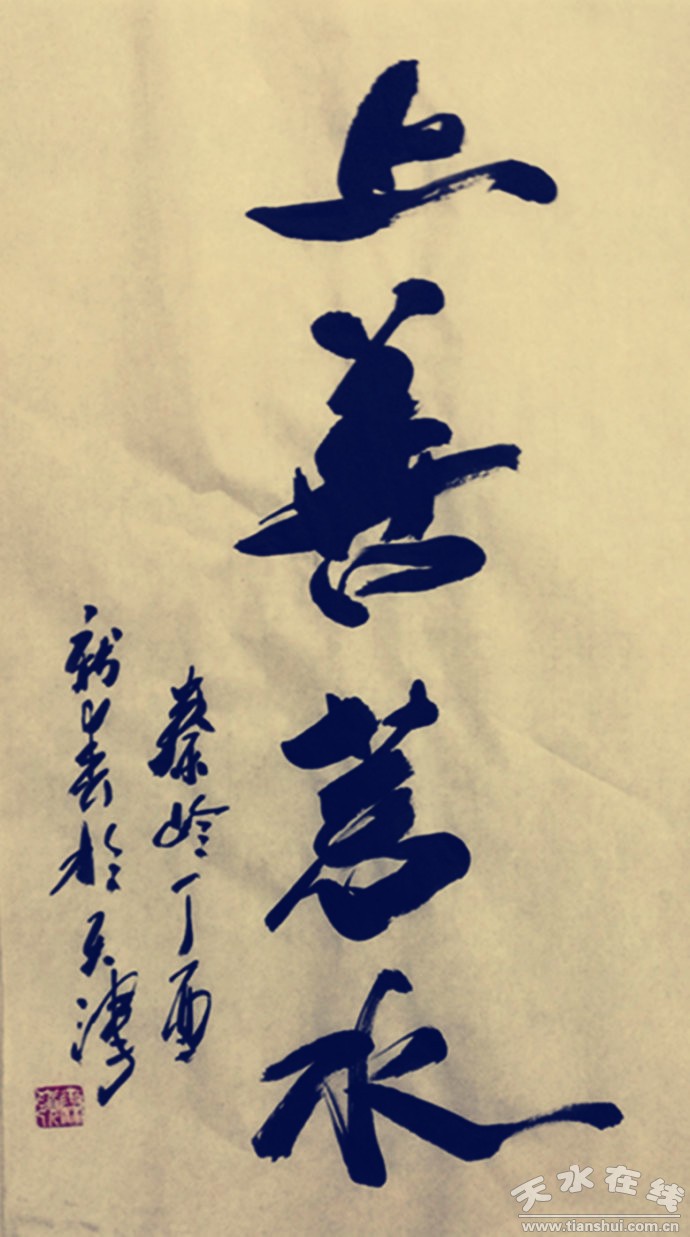 上善若水
秦岭丁酉
新春於天
天水在线
www.tianshui.com.cn